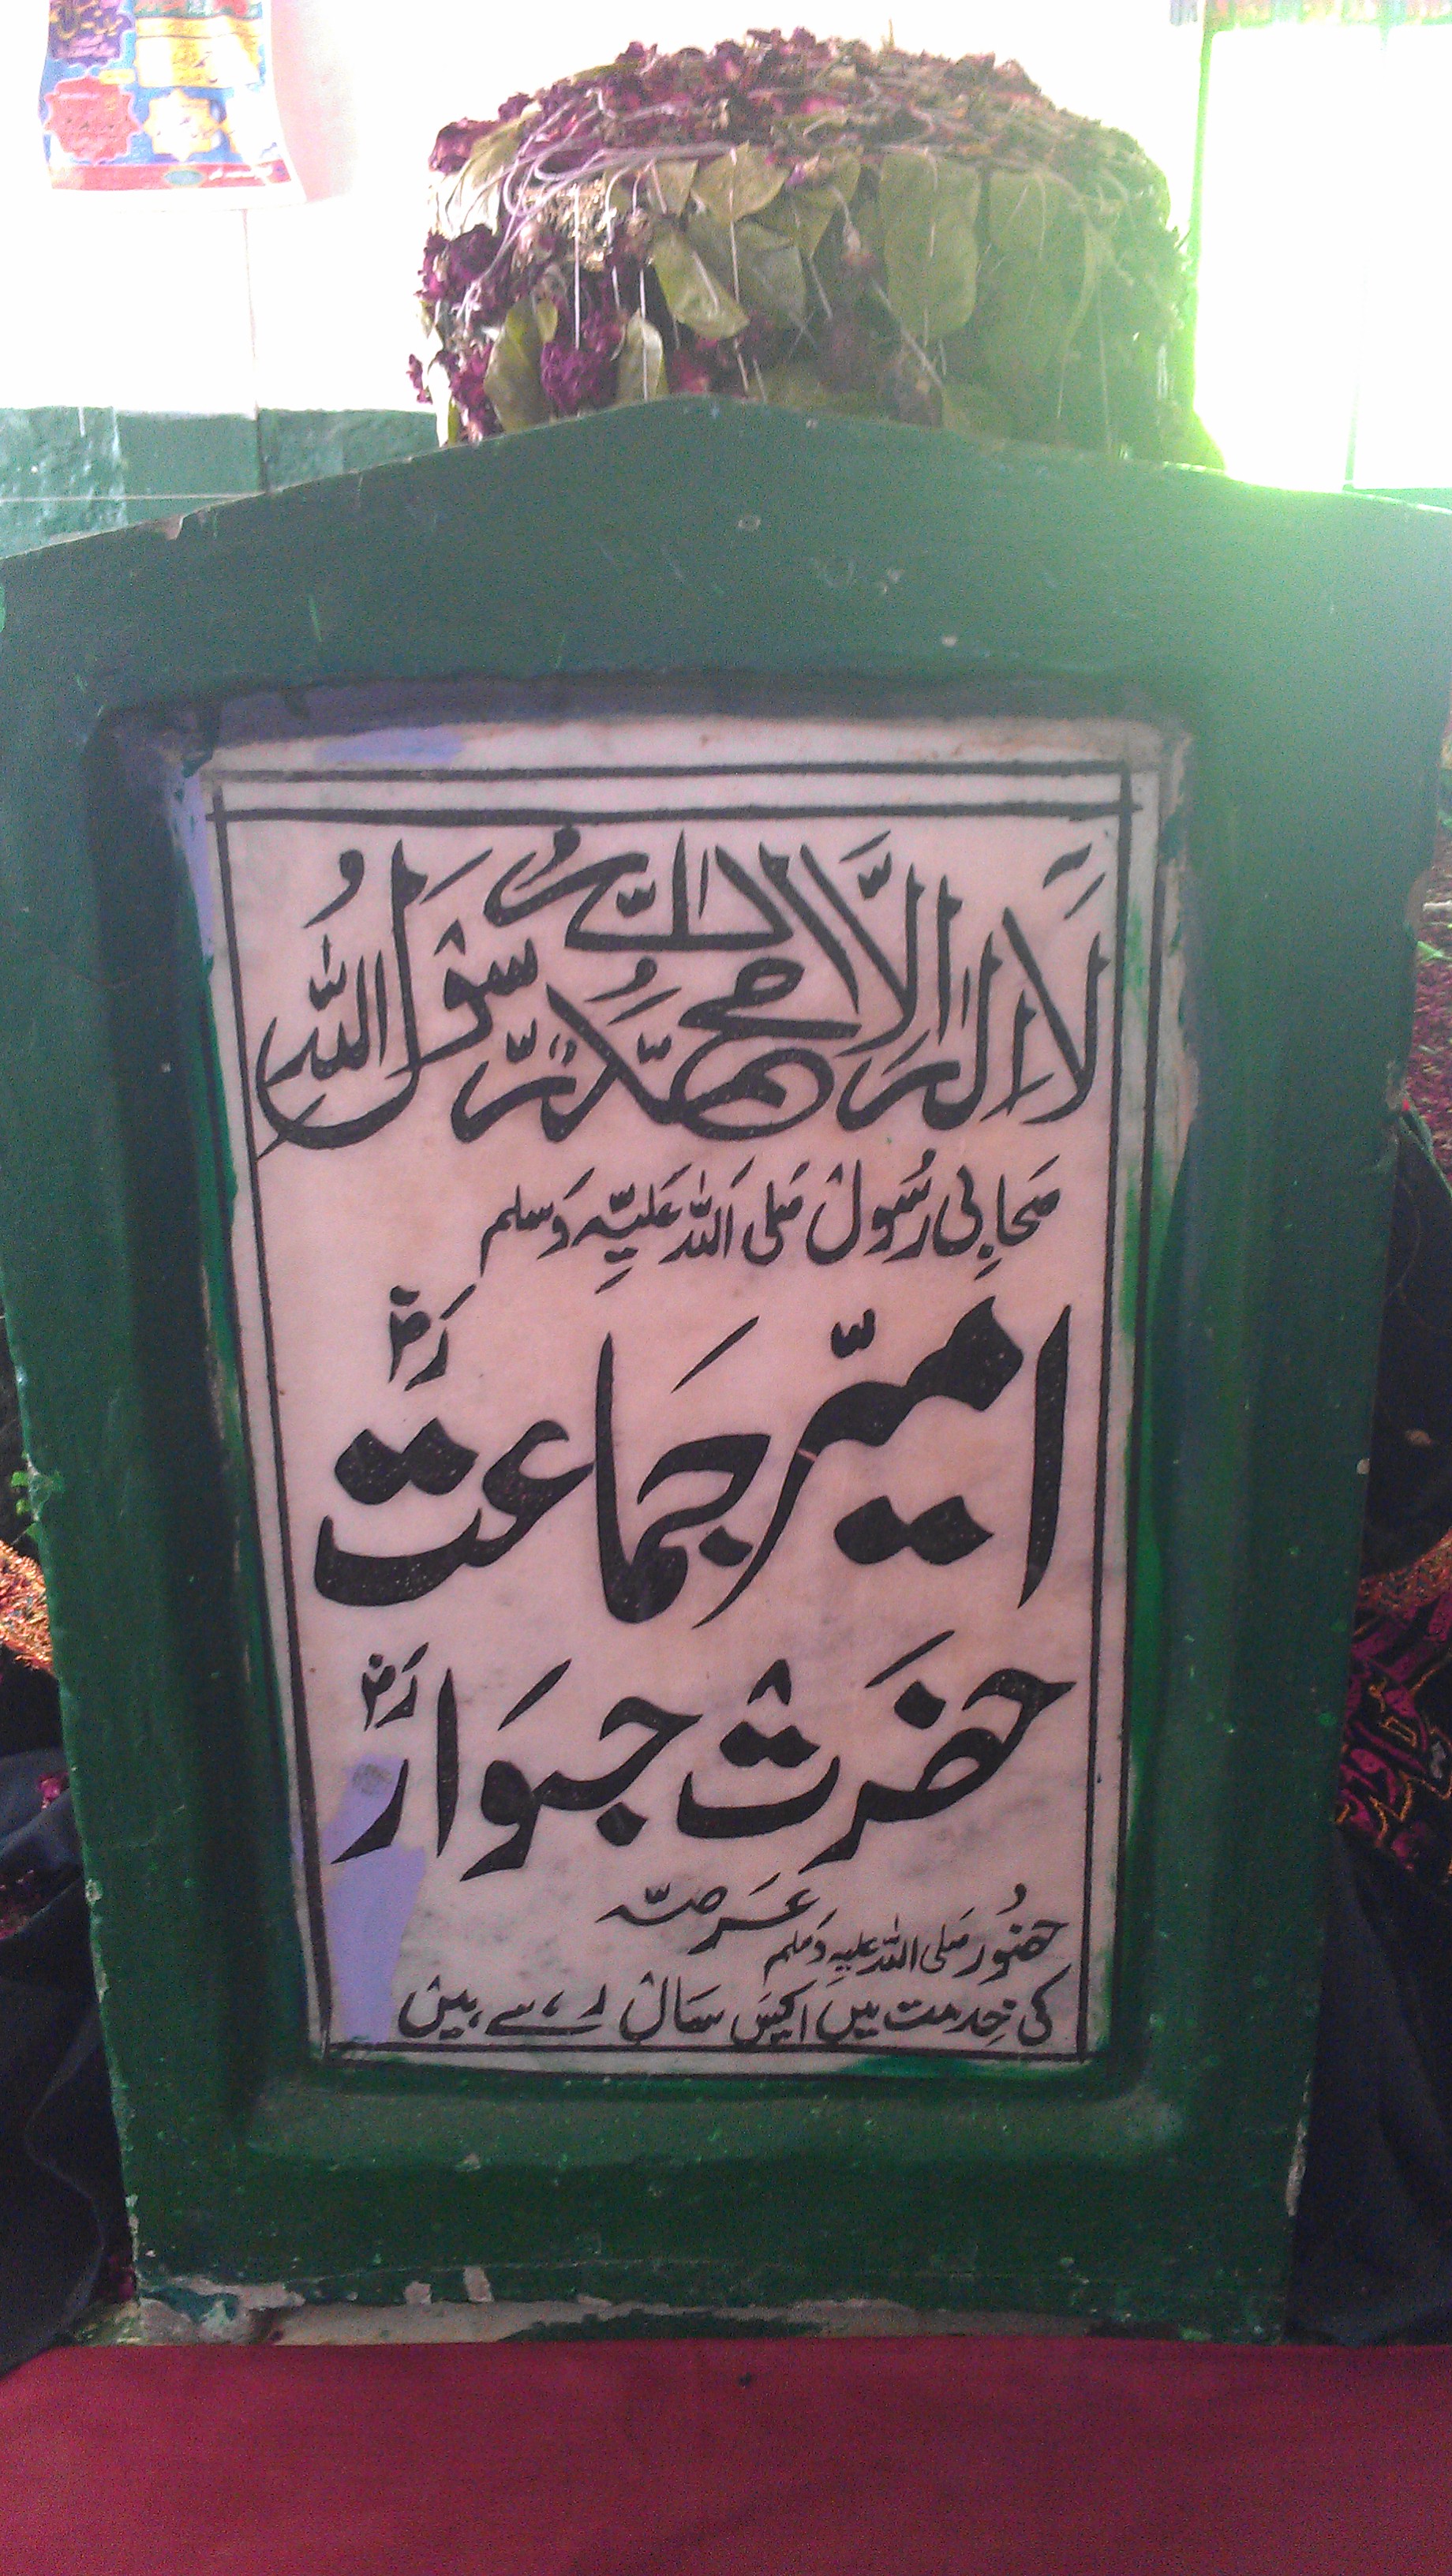 لَا اِلٰہَ اِلَّا اللہُ مُحَمَّدٌ رَّسُوْلُ اللہِ
صَحابِی رَسُول صَلی اَللہ عَلَیّہِ وَسلم
امیّر جَماعت رَض
حضَرت جبَوار رَض
حضُور صَلی اللہ علیہِ وَسلم عَرصہ
کی خِدمت میں اکیسَ سَال رہے ہیں